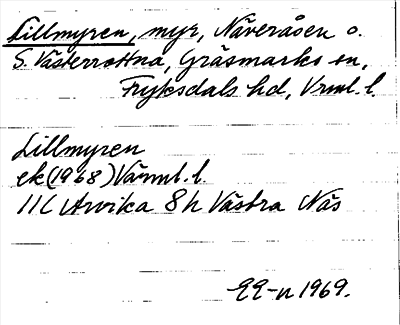 Lillmyren, myr, Näveråsen o.
S. Västerrottna, Gräsmarks sn,
Fryksdals hd, Vrml. l.
Lillmyren
ek (1968) Värml. l.
11C Arvika 8h Västra Näs
1969.